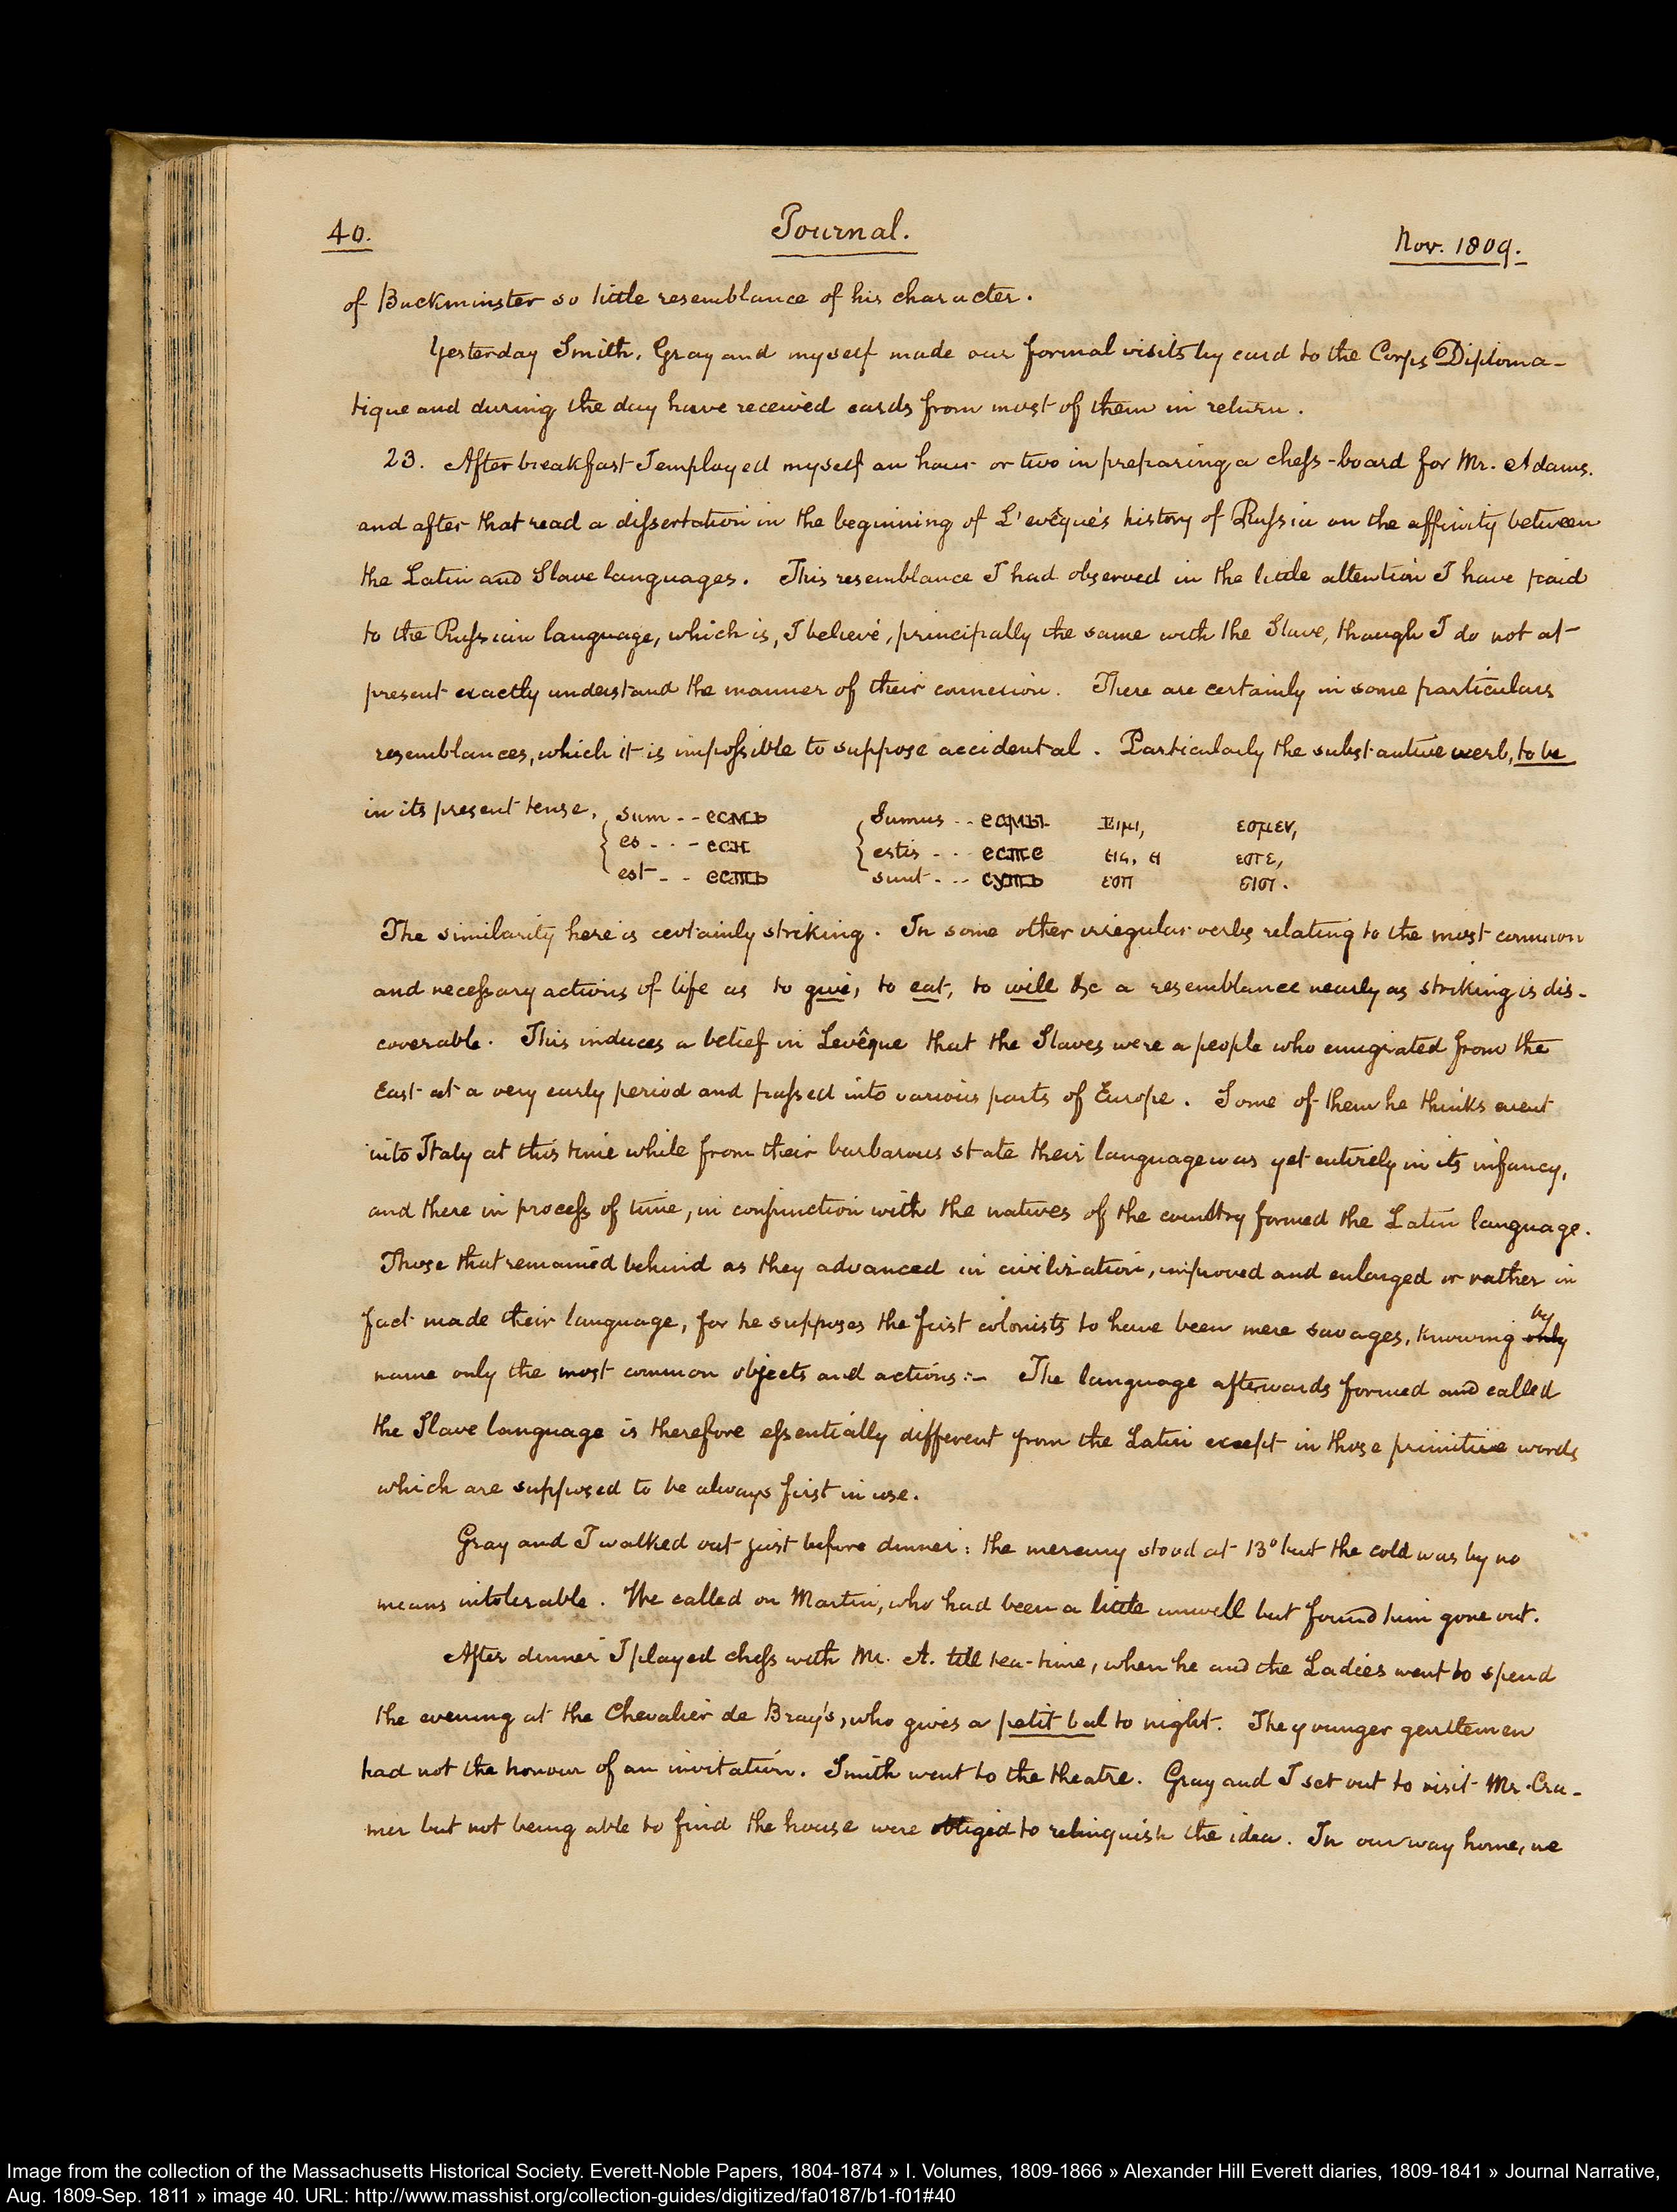 40.
Journal.
Nov. 1809.
of Buckminster so little resemblance of his character.
Yesterday Smith, Gray and myself made our formal visits by card to the Corps Diploma-
tique and during the day have received cards from most of them in return.
23. After breakfast I employed myself an hour or two in preparing a chess-board for Mr. Adams.
and after that read a dissertation in the beginning of L'evêque's history of Russia on the affinity between
the Latin and Slave languages. This resemblance I had observed in the little attention I have paid
to the Russian language, which is, I believe, principally the same with the Slave, though I do not at
present exactly understand the manner of their connexion. There are certainly in some particulars
resemblances, which it is impossible to suppose accidental. Particularly the substantive verb, to be
in its present tense, sum - - есмь Sumus - - есмы Ειμι, εσμεν,
es - - - еси estis - - - есте εις, ει εστε,
est - - - есть sunt - - - суть εστι εισι.
The similarity here is certainly striking. In some other irregular verbs relating to the most common
and necessary actions of life as to give, to eat, to will &c a resemblance nearly as striking is dis-
coverable. This induces a belief in Levêque that the Slaves were a people who emigrated from the
East at a very early period and passed into various parts of Europe. Some of them he thinks went
into Italy at this time while from their barbarous state their language was yet entirely in its infancy,
and there in process of time, in conjunction with the natives of the country formed the Latin language.
Those that remained behind as they advanced in civilization, improved and enlarged or rather in
fact made their language, for he supposes the first colonists to have been mere savages, knowing only by
name only the most common objects and actions:- The language afterwards formed and called
the Slave language is therefore essentially different from the Latin except in those primitive words
which are supposed to be always first in use.
Gray and I walked out just before dinner: the mercury stood at 13° but the cold was by no
means intolerable. We called on Martin, who had been a little unwell but found him gone out.
After dinner I played chess with Mr. A. till tea-time, when he and the Ladies went to spend
the evening at the Chevalier de Bray's, who gives a petit bal to night. The younger gentlemen
had not the honour of an invitation. Smith went to the theatre. Gray and I set out to visit Mr. Cra-
mer but not being able to find the house were obliged to relinquish the idea. In our way home, we
Image from the collection of the Massachusetts Historical Society. Everett-Noble Papers, 1804-1874 » I. Volumes, 1809-1866 » Alexander Hill Everett diaries, 1809-1841 » Journal Narrative,
Aug. 1809-Sep. 1811 » image 40. URL: http://www.masshist.org/collection-guides/digitized/fa0187/b1-f01#40